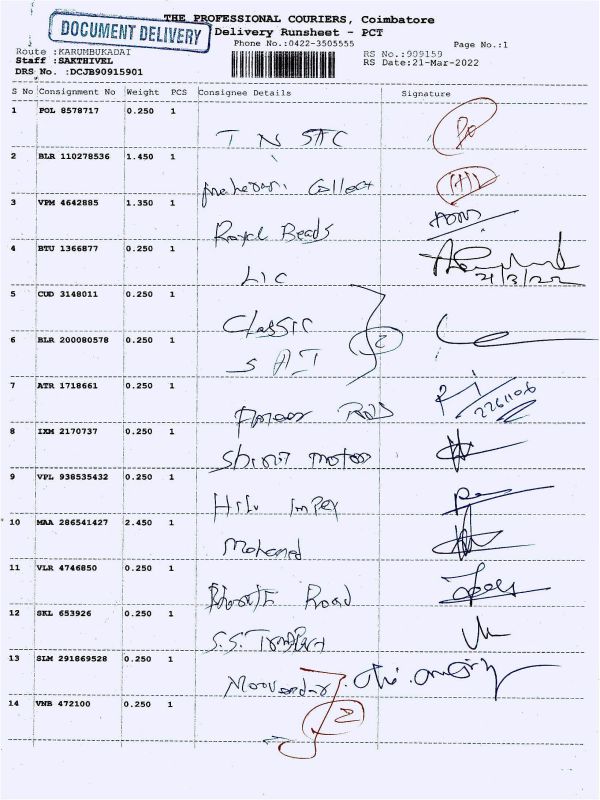 THE PROFESSIONAL COURIERS, Coimbatore
DOCUMENT DELIVERY
Delivery Runsheet - PCT
Phone No.:0422-3505555
Page No.:1
Route :KARUMBUKADAI
RS No.:909159
Staff :SAKTHIVEL
RS Date:21-Mar-2022
DRS No. :DCJB90915901
S No Consignment No Weight PCS Consignee Details Signature
1 POL 8578717 0.250 1
T N STC
2 BLR 110278536 1.450 1
Collect
3 VPM 4642885 1.350 1
Royal Beads
4 BTU 1366877 0.250 1
LIC
21/3/22
5 CUD 3148011 0.250 1
Classic
2
6 BLR 200080578 0.250 1
S A I
7 ATR 1718661 0.250 1
2261106
8 IXM 2170737 0.250 1
motors
9 VPL 938535432 0.250 1
Impex
10 MAA 286541427 2.450 1
Mohamed
11 VLR 4746850 0.250 1
Road
12 SKL 653926 0.250 1
S.S. Transport
13 SLM 291869528 0.250 1
Moovendar
14 VNB 472100 0.250 1
2